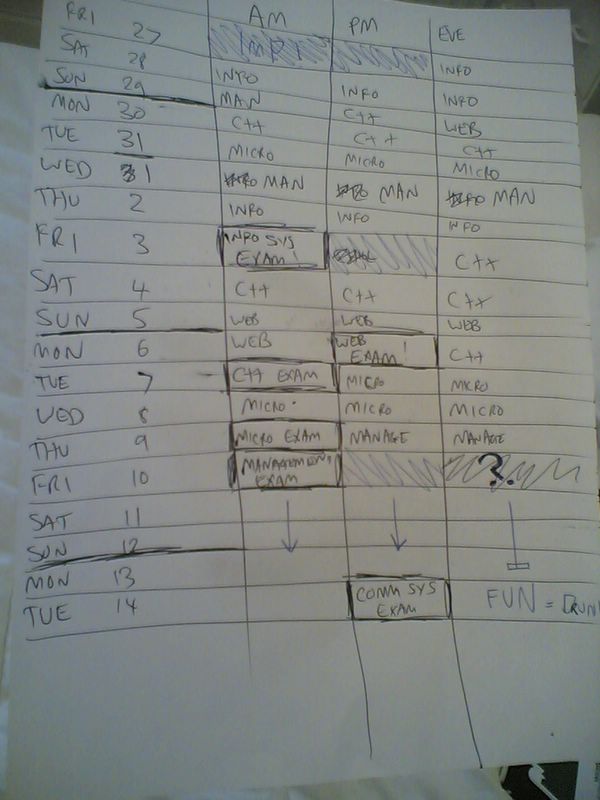 AM PM EVE
FRI 27 INFO
SAT 28 INFO INFO INFO
SUN 29 MAN C++ WEB
MON 30 C++ C++ C++
TUE 31 MICRO MICRO MICRO
WED 1 MAN MAN MAN
THU 2 INFO INFO INFO
FRI 3 INFO SYS EXAM! C++
SAT 4 C++ C++ C++
SUN 5 WEB WEB WEB
MON 6 WEB WEB EXAM! C++
TUE 7 C++ EXAM MICRO MICRO
WED 8 MICRO MICRO MICRO
THU 9 MICRO EXAM MANAGE MANAGE
FRI 10 MANAGEMENT EXAM ?
SAT 11
SUN 12
MON 13
TUE 14 COMM SYS EXAM FUN =